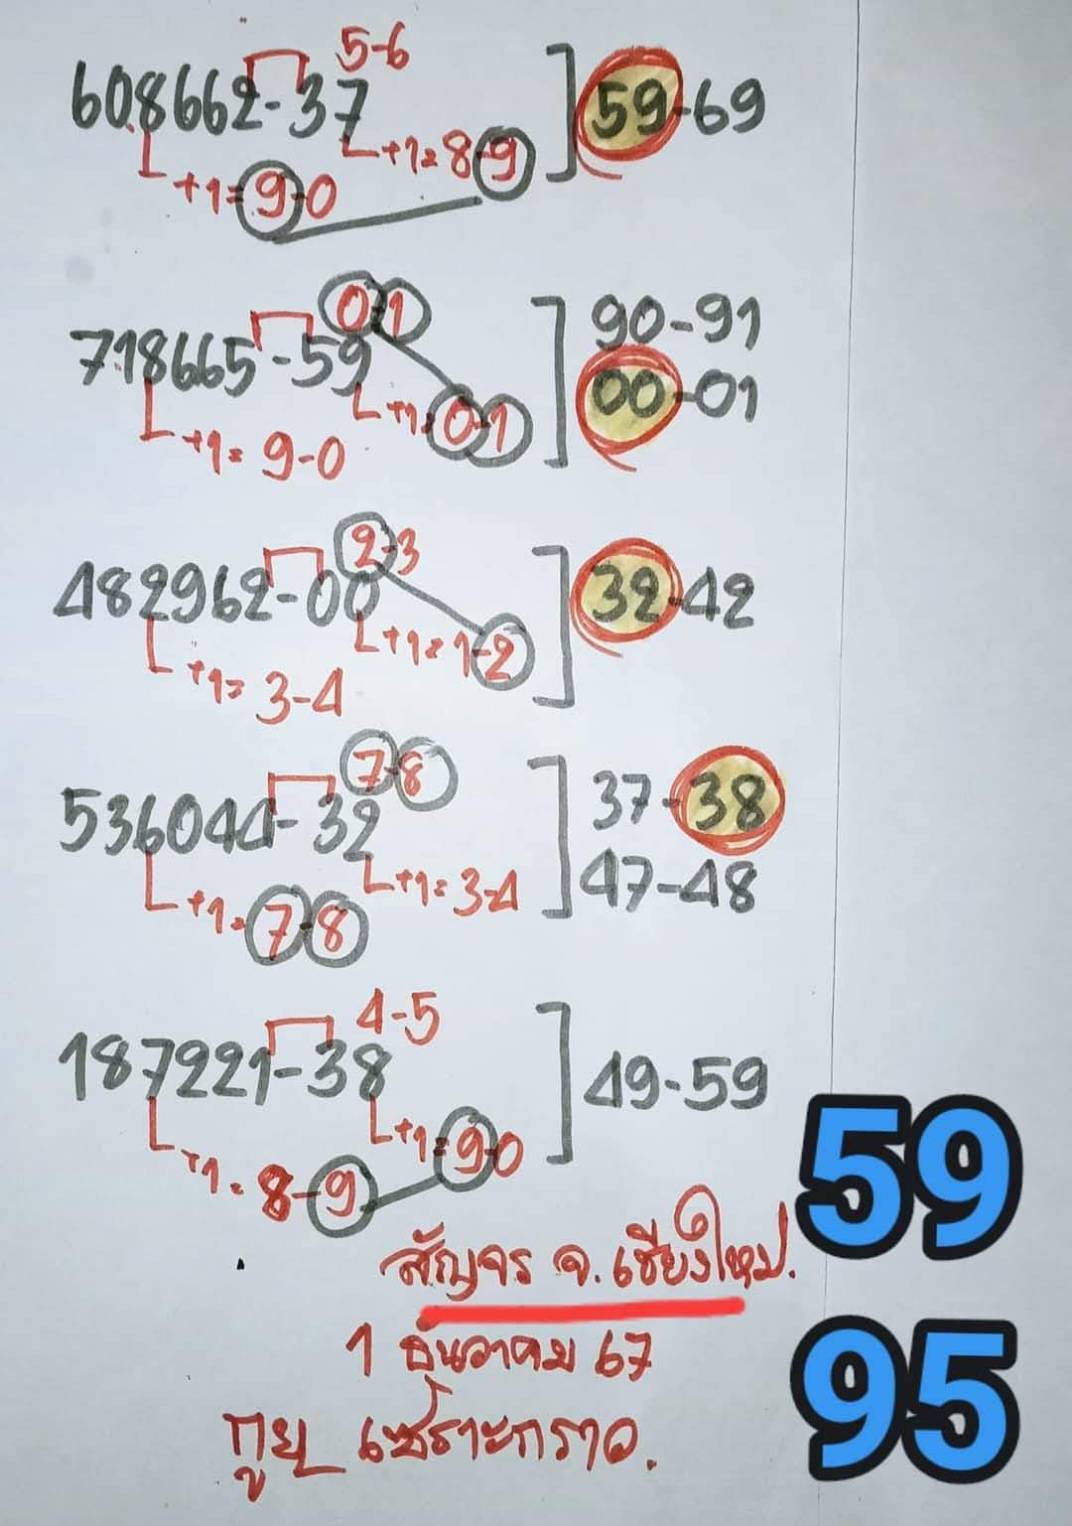 5-6
608662-37
59-69
+1=8-9
+1=9-0
0-1
718665-59
90-91
+1=0-1
00-01
+1=9-0
2-3
482962-00
32-42
+1=1-2
+1=3-4
7-8
536044-32
37-38
+1=3-4
47-48
+1=7-8
4-5
187221-38
49-59
+1=9-0
+1=8-9
59
สัญจร จ.เชียงใหม่.
1 ธันวาคม 67
95
กูย เซราะกราว.